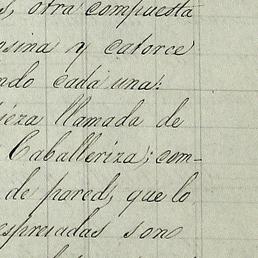 s, otra compuesta
osina y catorce
ndo cada una:
ieza llamada de
Caballeriza); com-
de pared, que lo
espreiadas son